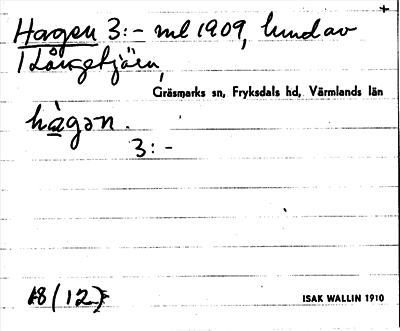 Hagen 3:- ml 1909, lund av
1 Långetjärn,
Gräsmarks sn, Fryksdals hd, Värmlands län
hàgən.
3:-
18 (12)
ISAK WALLIN 1910